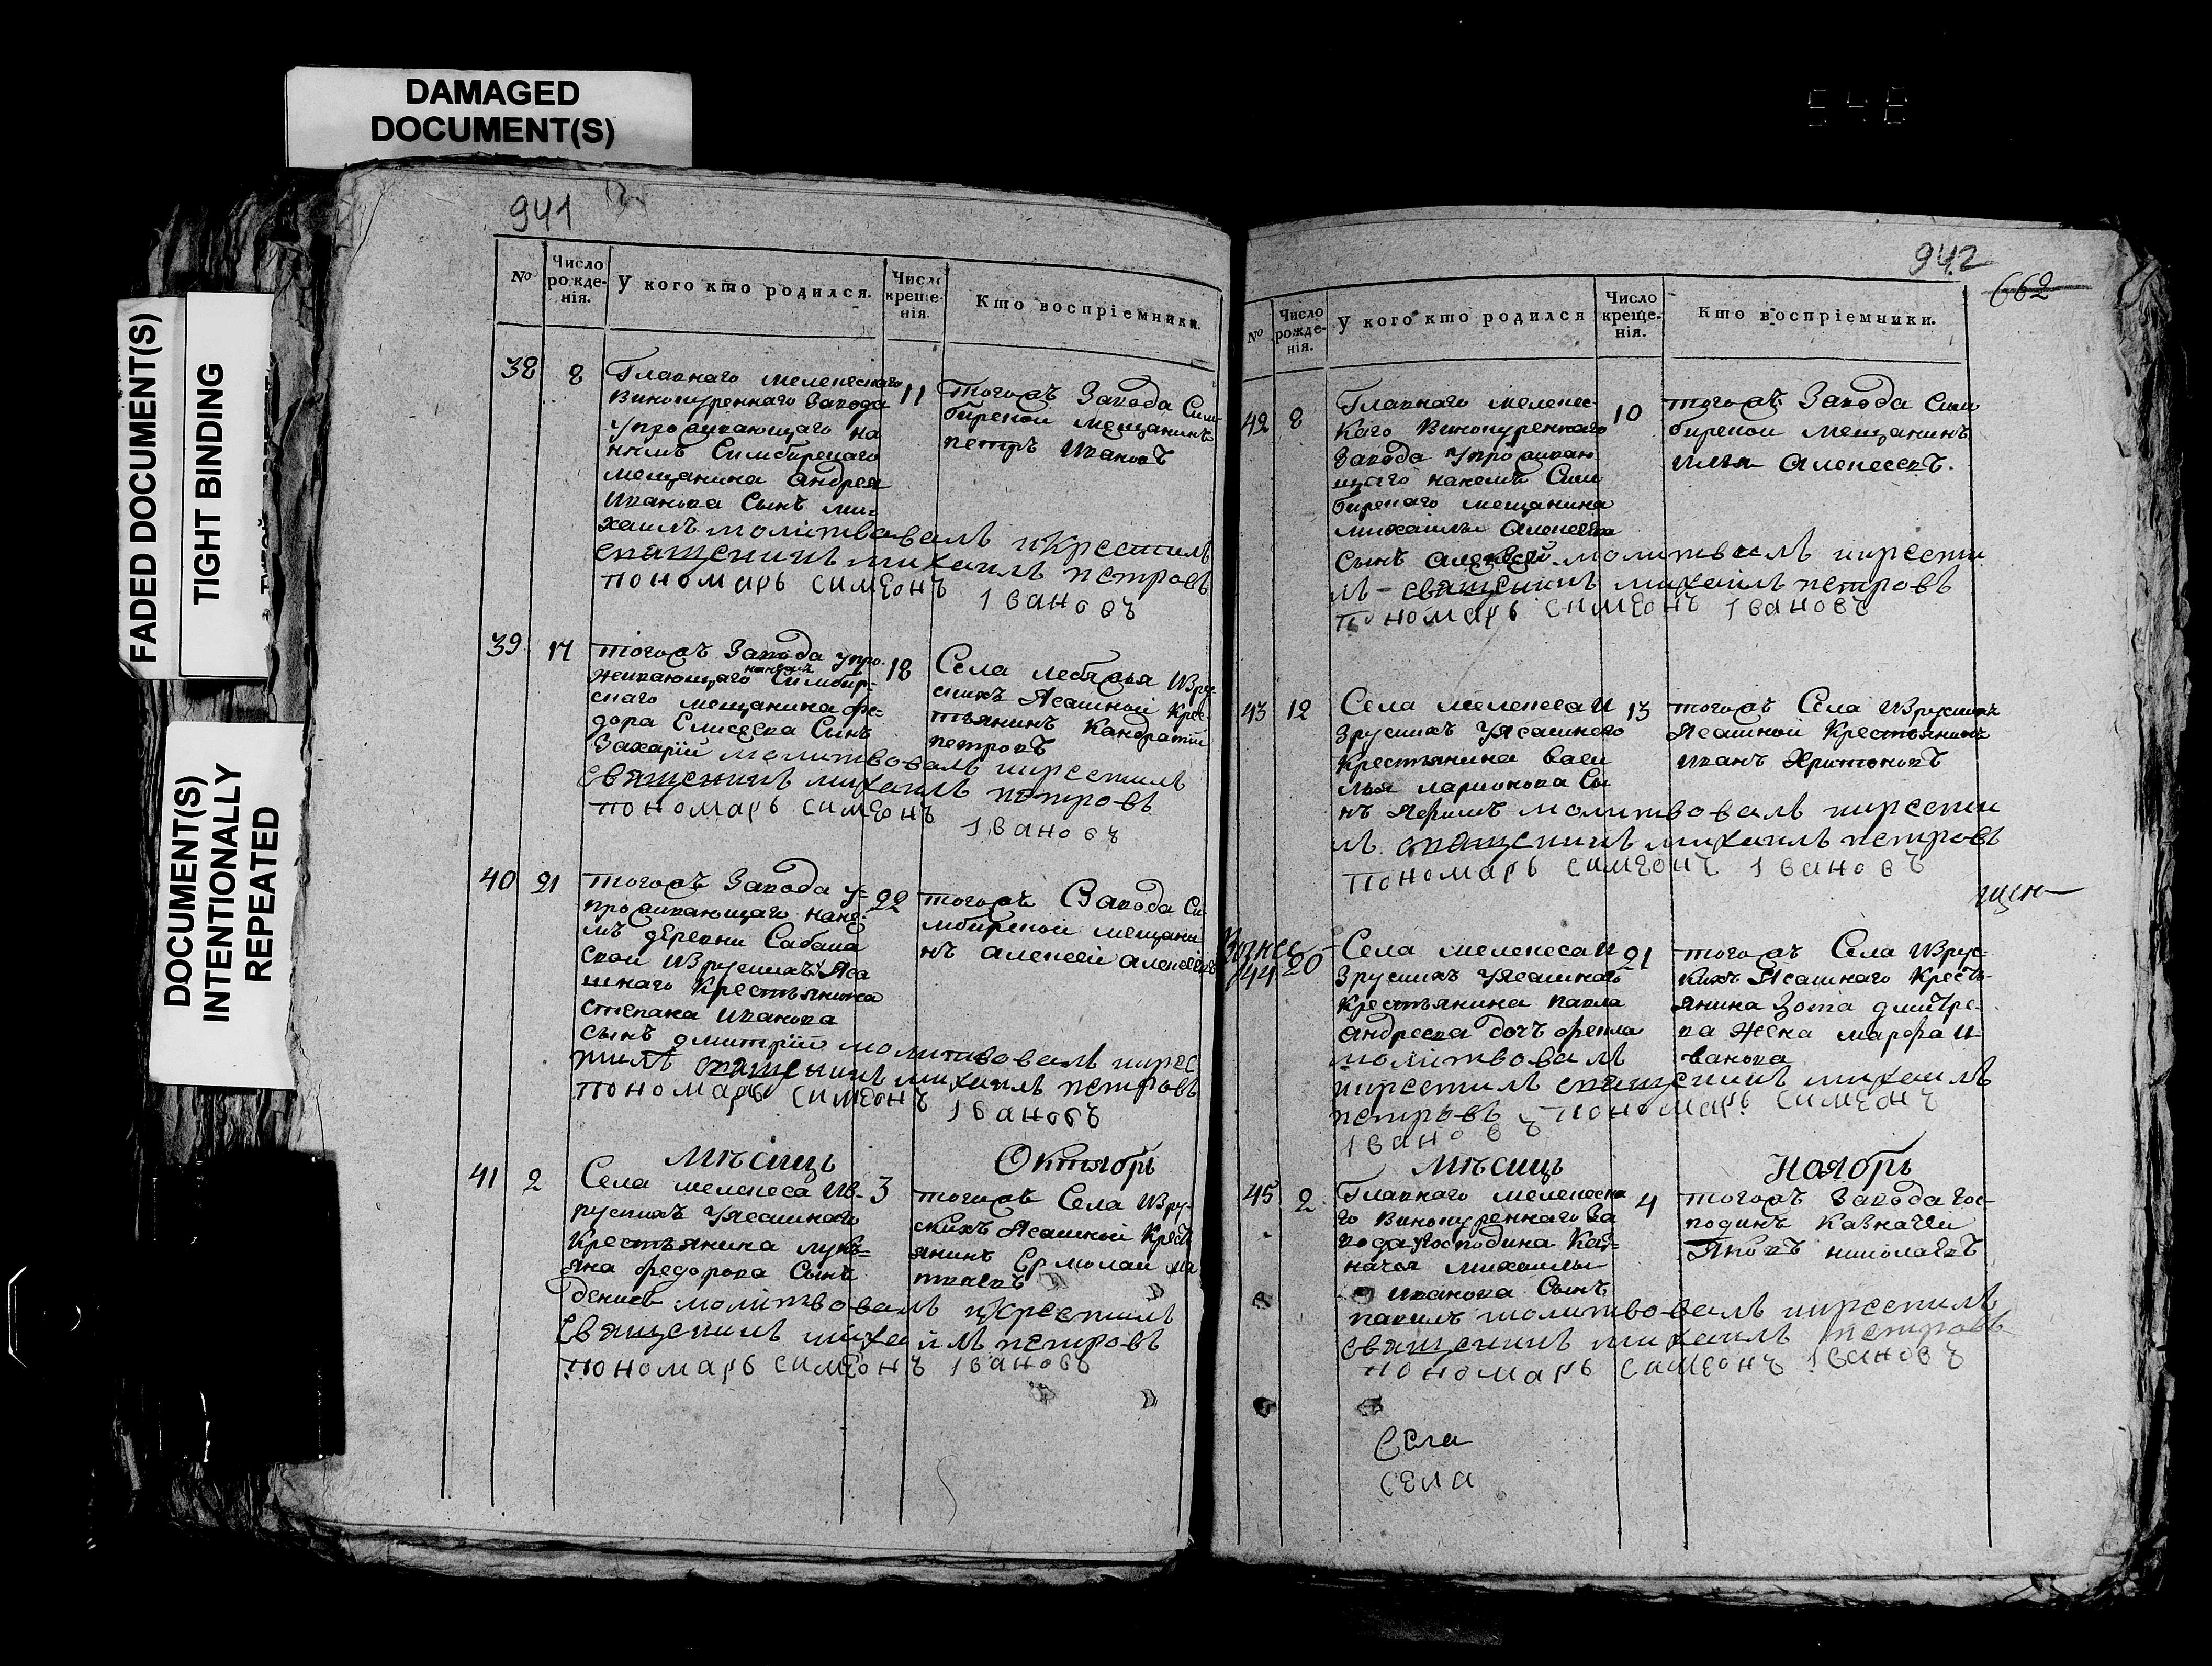 DAMAGED
DOCUMENT(S)
FADED DOCUMENT(S)
TIGHT BINDING
DOCUMENT(S)
INTENTIONALLY
REPEATED
941
№
Число рожде-нія.
У кого кто родился.
Число креще-нія.
Кто воспріемники.
38
8
Главнаго мелекескаго
винокуреннаго завода
упроживающаго на
немъ Симбирскаго
мещанина Андрея
Иванова Сынъ ми-
хаилъ молитвовалъ икрестилъ
священникъ михаилъ петровъ
пономарь симеонъ Iвановъ
11
тогожъ Завода Сим-
бирской мещанинъ
петръ Ивановъ
39
17
тогожъ Завода упро-
живающаго нанемъ Симбир-
скаго мещанина фе-
дора Елисеева Сынъ
Захарий молитвовалъ икрестилъ
священникъ михаилъ петровъ
пономарь симеонъ
Iвановъ
18
Села лебяжья Изру-
скихъ Ясашной Крес-
тьянинъ Кандратий
петровъ
40
21
тогожъ Завода у-
проживающаго нане-
мъ деревни Сабака
ской Изрускихъ Яса
шнаго Крестьянина
степана Иванова
сынъ дмитрий молитвовалъ икрес
тилъ священникъ михаилъ петровъ
пономарь симеонъ Iвановъ
22
тогожъ Завода Си-
мбирской мещани
нъ алексей алексеевъ
Мѣсяцъ Октябрь
41
2
Села мелекеса Из-
рускихъ Уясашнаго
Крестьянина лукь-
яна федорова Сынъ
денисъ молитвовалъ икрестилъ
священникъ михаилъ петровъ
пономарь симеонъ Iвановъ
3
тогожъ Села Изру-
скихъ Ясашной Кресть
янинъ Ермолай ма
твеевъ
942
662
№
Число рожде-нія.
У кого кто родился
Число креще-нія.
Кто воспріемники.
42
8
Главнаго мелекес-
каго Винокуреннаго
Завода Упроживаю
щаго нанемъ Сим
бирскаго мещанина
михаилы алексеева
сынъ алексей молитвовалъ икрести
лъ - священникъ михаилъ петровъ
пономарь симеонъ Iвановъ
10
тогожъ Завода Сим
бирской мещанинъ
Илья алексеевъ.
43
12
Села мелекеса И
зрускихъ Уясашнаго
Крестьянина васи
лья ларионова Сы
нъ молитвовалъ икрести
лъ священникъ михаилъ петровъ
пономарь симеонъ Iвановъ
13
тогожъ Села Изрускихъ
Ясашной Крестьянинъ
иванъ Харитоновъ
44
20
Села мелекеса И
зрускихъ Уясашнаго
Крестьянина павла
андреева дочь фекла
молитвовалъ
икрестилъ священникъ михаилъ
петровъ пономарь симеонъ
Iвановъ
21
тогожъ Села Изрус-
кихъ Ясашнаго Кресть-
янина Зота дмитре-
ва Жена марфа И-
ванова
Мѣсяцъ Ноябрь
45
2
Главнаго мелекеска
го Винокуреннаго За
вода Угосподина Каз-
начея михаилы
иванова Сынъ
павилъ молитвовалъ икрестилъ
священникъ михаилъ петровъ
пономарь симеонъ Iвановъ
4
тогожъ Завода гос-
подинъ Казначеи
Яковъ николаевъ
Села
села